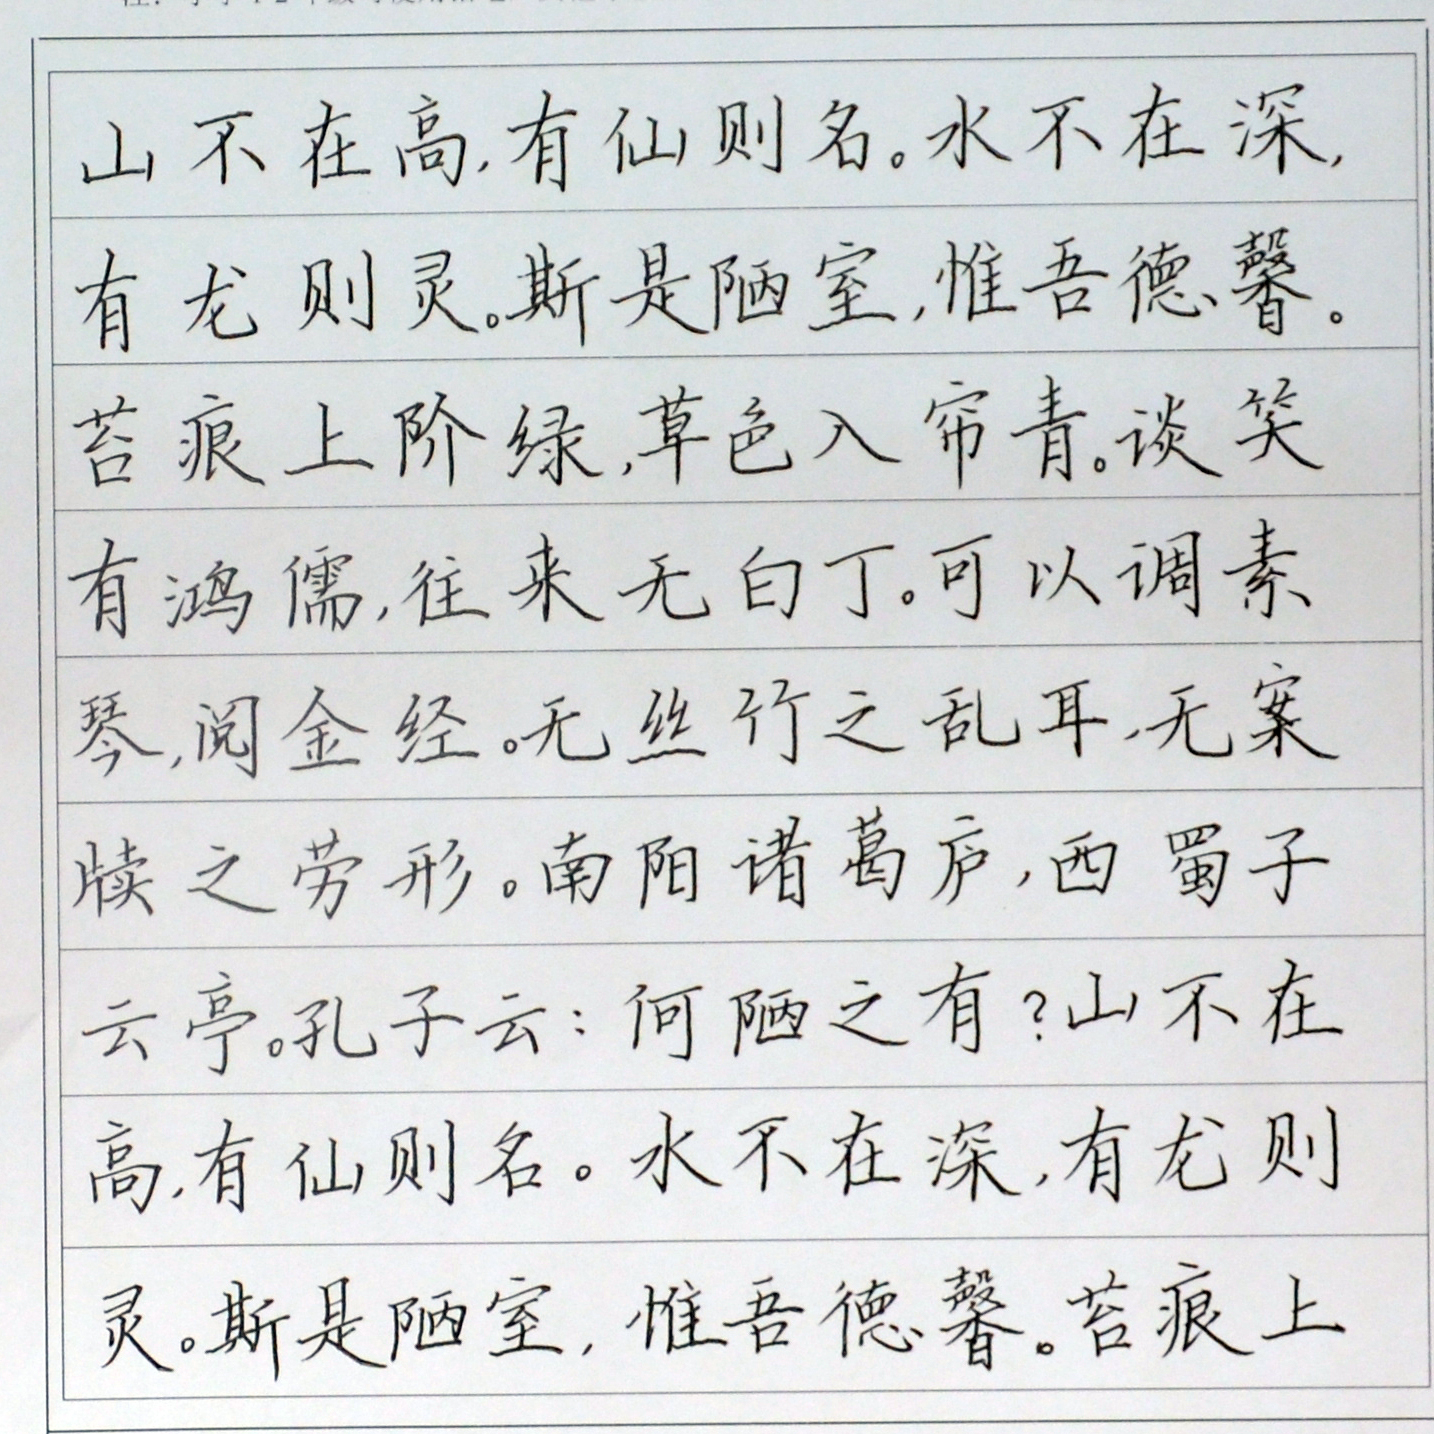 山不在高,有仙则名。水不在深,
有龙则灵。斯是陋室,惟吾德馨。
苔痕上阶绿,草色入帘青。谈笑
有鸿儒,往来无白丁。可以调素
琴,阅金经。无丝竹之乱耳,无案
牍之劳形。南阳诸葛庐,西蜀子
云亭。孔子云:何陋之有?山不在
高,有仙则名。水不在深,有龙则
灵。斯是陋室,惟吾德馨。苔痕上